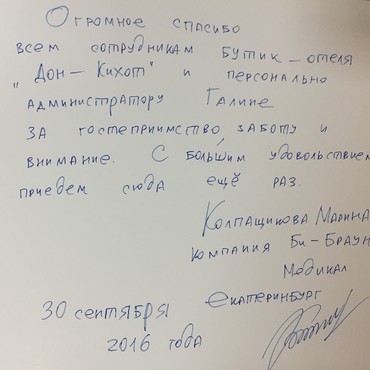 Огромное спасибо
всем сотрудникам бутик-отеля
"Дон-Кихот" и персонально
администратору Галине
за гостеприимство, заботу и
внимание. С большим удовольствием
приедем сюда ещё раз.
Колпащикова Марина
компания Би-Браун
Медикал
Екатеринбург
30 сентября
2016 года